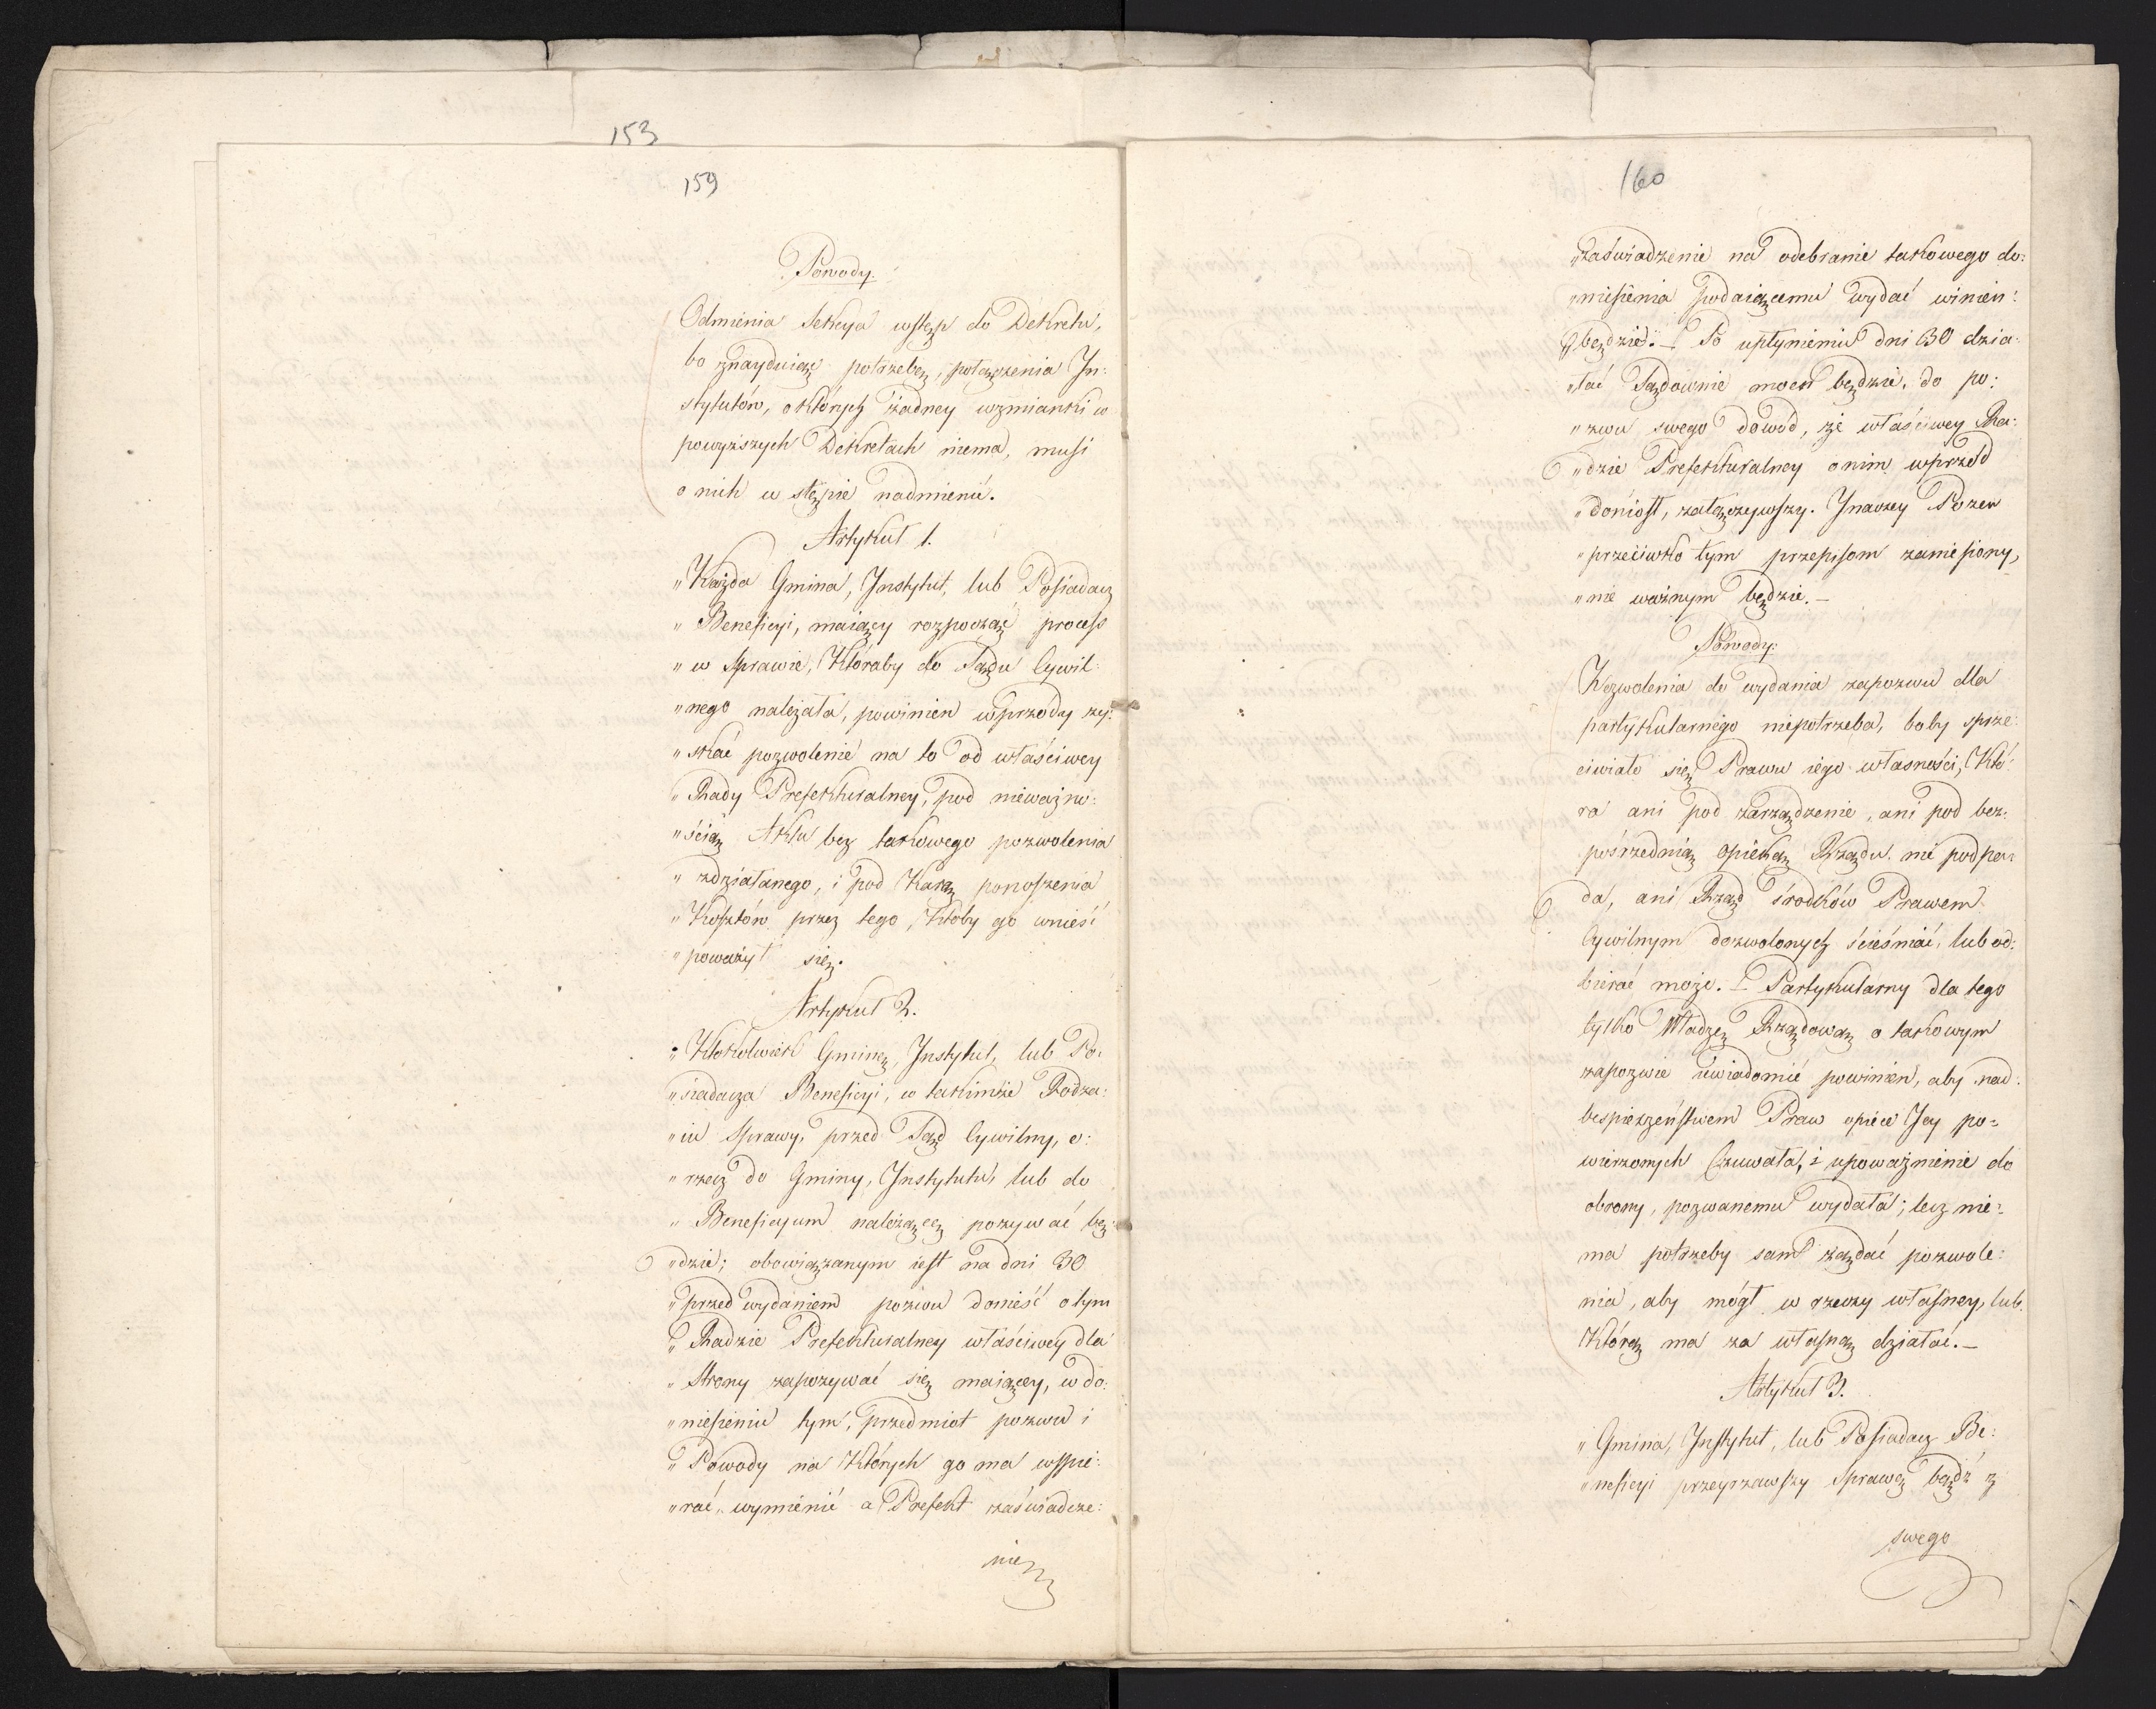 153
159
Powody.
Odmienia Sekcya wstęp do Dekretu,
bo znayduiąc potrzebę, połączenia In:
stytutów, o których żadney wzmianki w
powyższych Dekretach niema, musi
o nich w stępie nadmienić.
Artykuł 1.
„Każda Gmina, Instytut, lub Posiadacz
„Beneficyi, maiący rozpocząć process
„w sprawie, któraby do Sądu Cywil:
„nego należała, powinien wprzody zy:
„skać pozwolenie na to od właściwey
„Rady Prefekturalney, pod nieważno:
„ścią Aktu bez takowego pozwolenia
„zdziałanego, i pod karą ponoszenia
„Kosztów przez tego, ktoby go wnieść
„poważył się.
Artykuł 2.
„Ktokolwiek Gminę, Instytut, lub Po:
„siadacza Beneficyi, w takimże Rodza:
„iu sprawy, przed Sąd Cywilny, o:
„rzecz do Gminy, Instytutu, lub do
„Beneficyum należącą pozywać bę:
„dzie; obowiązanym iest na dni 30
„przed wydaniem pozwu donieść o tym
„Radzie Prefekturalney właściwey dla
„Strony zapozywać się maiącey, w do:
„niesieniu tym, przedmiot pozwu i
„Powody na których go ma wspie:
„rać, wymienić a Prefekt zaświadcze:
nie
160
„zaświadzenie na odebranie takowego do:
„niesienia podaiącemu wydać winien:
„będzie. — Po upłynieniu dni 30 dzia:
„łać Sądownie mocen będzie, do po:
„zwu swego dowód, że właściwey Ra:
„dzie Prefekturalney o nim wprzód
„doniosł, załączywszy. Inaczey Pozew
„przeciwko tym przepisom zaniesiony,
„nie ważnym będzie. —
Powody.
Zezwolenia do wydania zapozwu dla
partykularnego niepotrzeba, boby sprze:
ciwiało się Prawu iego własności, któ:
ra ani pod zarządzenie, ani pod bez:
pośrzednią opiekę Rządu nie podpa:
da, ani Rząd środków Prawem
Cywilnym dozwolonych ścieśniać, lub od:
bierać może. — Partykularny dla tego
tylko Władzę Rządową o takowym
zapozwie uwiadomić powinien, aby nad
bespieczeństwem Praw opiece Jey po:
wierzonych czuwała, i upoważnienie do
obrony, pozwanemu wydała; lecz nie:
ma potrzeby sam żądać pozwole:
nia, aby mógł w rzeczy własney, lub
którą ma za własną działać. —
Artykuł 3.
„Gmina, Instytut, lub Posiadacz Be:
„neficyi przeyrzawszy sprawę bądź z
swego